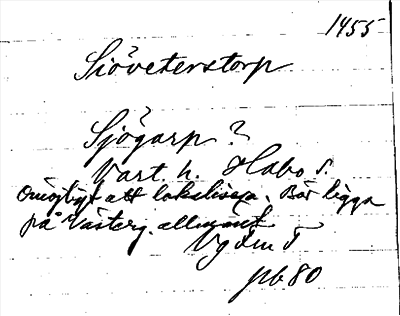 1455
Siöveterstorp
Sjögarp?
Vart. h. Habo s.
Omöjligt att lokalisera. Bör ligga
på Västerg. allmänt
Vg dm 5
pb 80